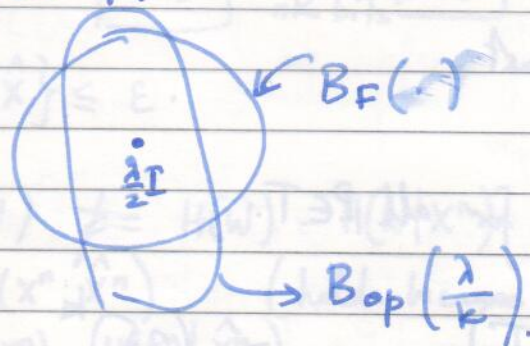 B_F(·)
λ/2 I
B_op(λ/k).